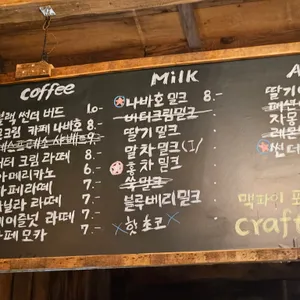 coffee
썬더 버드 10.-
크림 카페 나바호 8.-
8.-
버터 크림 라떼 8.-
아메리카노 6.-
카페라떼 7.-
바닐라 라떼 7.-
헤이즐넛 라떼 7.-
카페 모카 7.-
Milk
나바호 밀크 8.-
버터크림밀크
딸기 밀크
말차 밀크(I/
홍차 밀크
쑥밀크
블루베리밀크
핫초코
A
딸기
패션
자몽
레몬
썬드
맥파이 포
craft